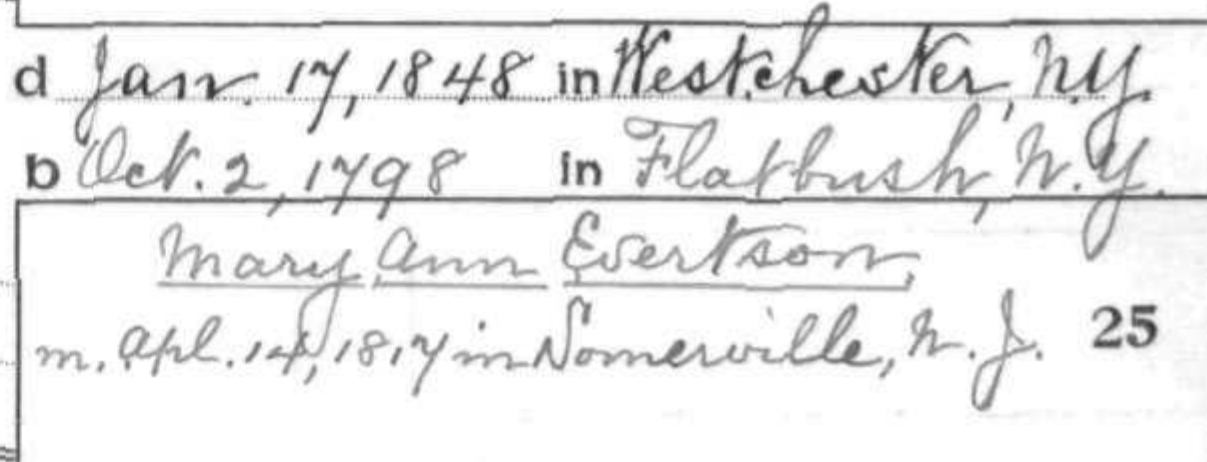 d Jan. 17, 1848 in Westchester, N.Y.
b Oct. 2, 1798 in Flatbush, N.Y.
Mary Ann Evertson,
m. Apl. 14, 1817 in Somerville, N.J. 25